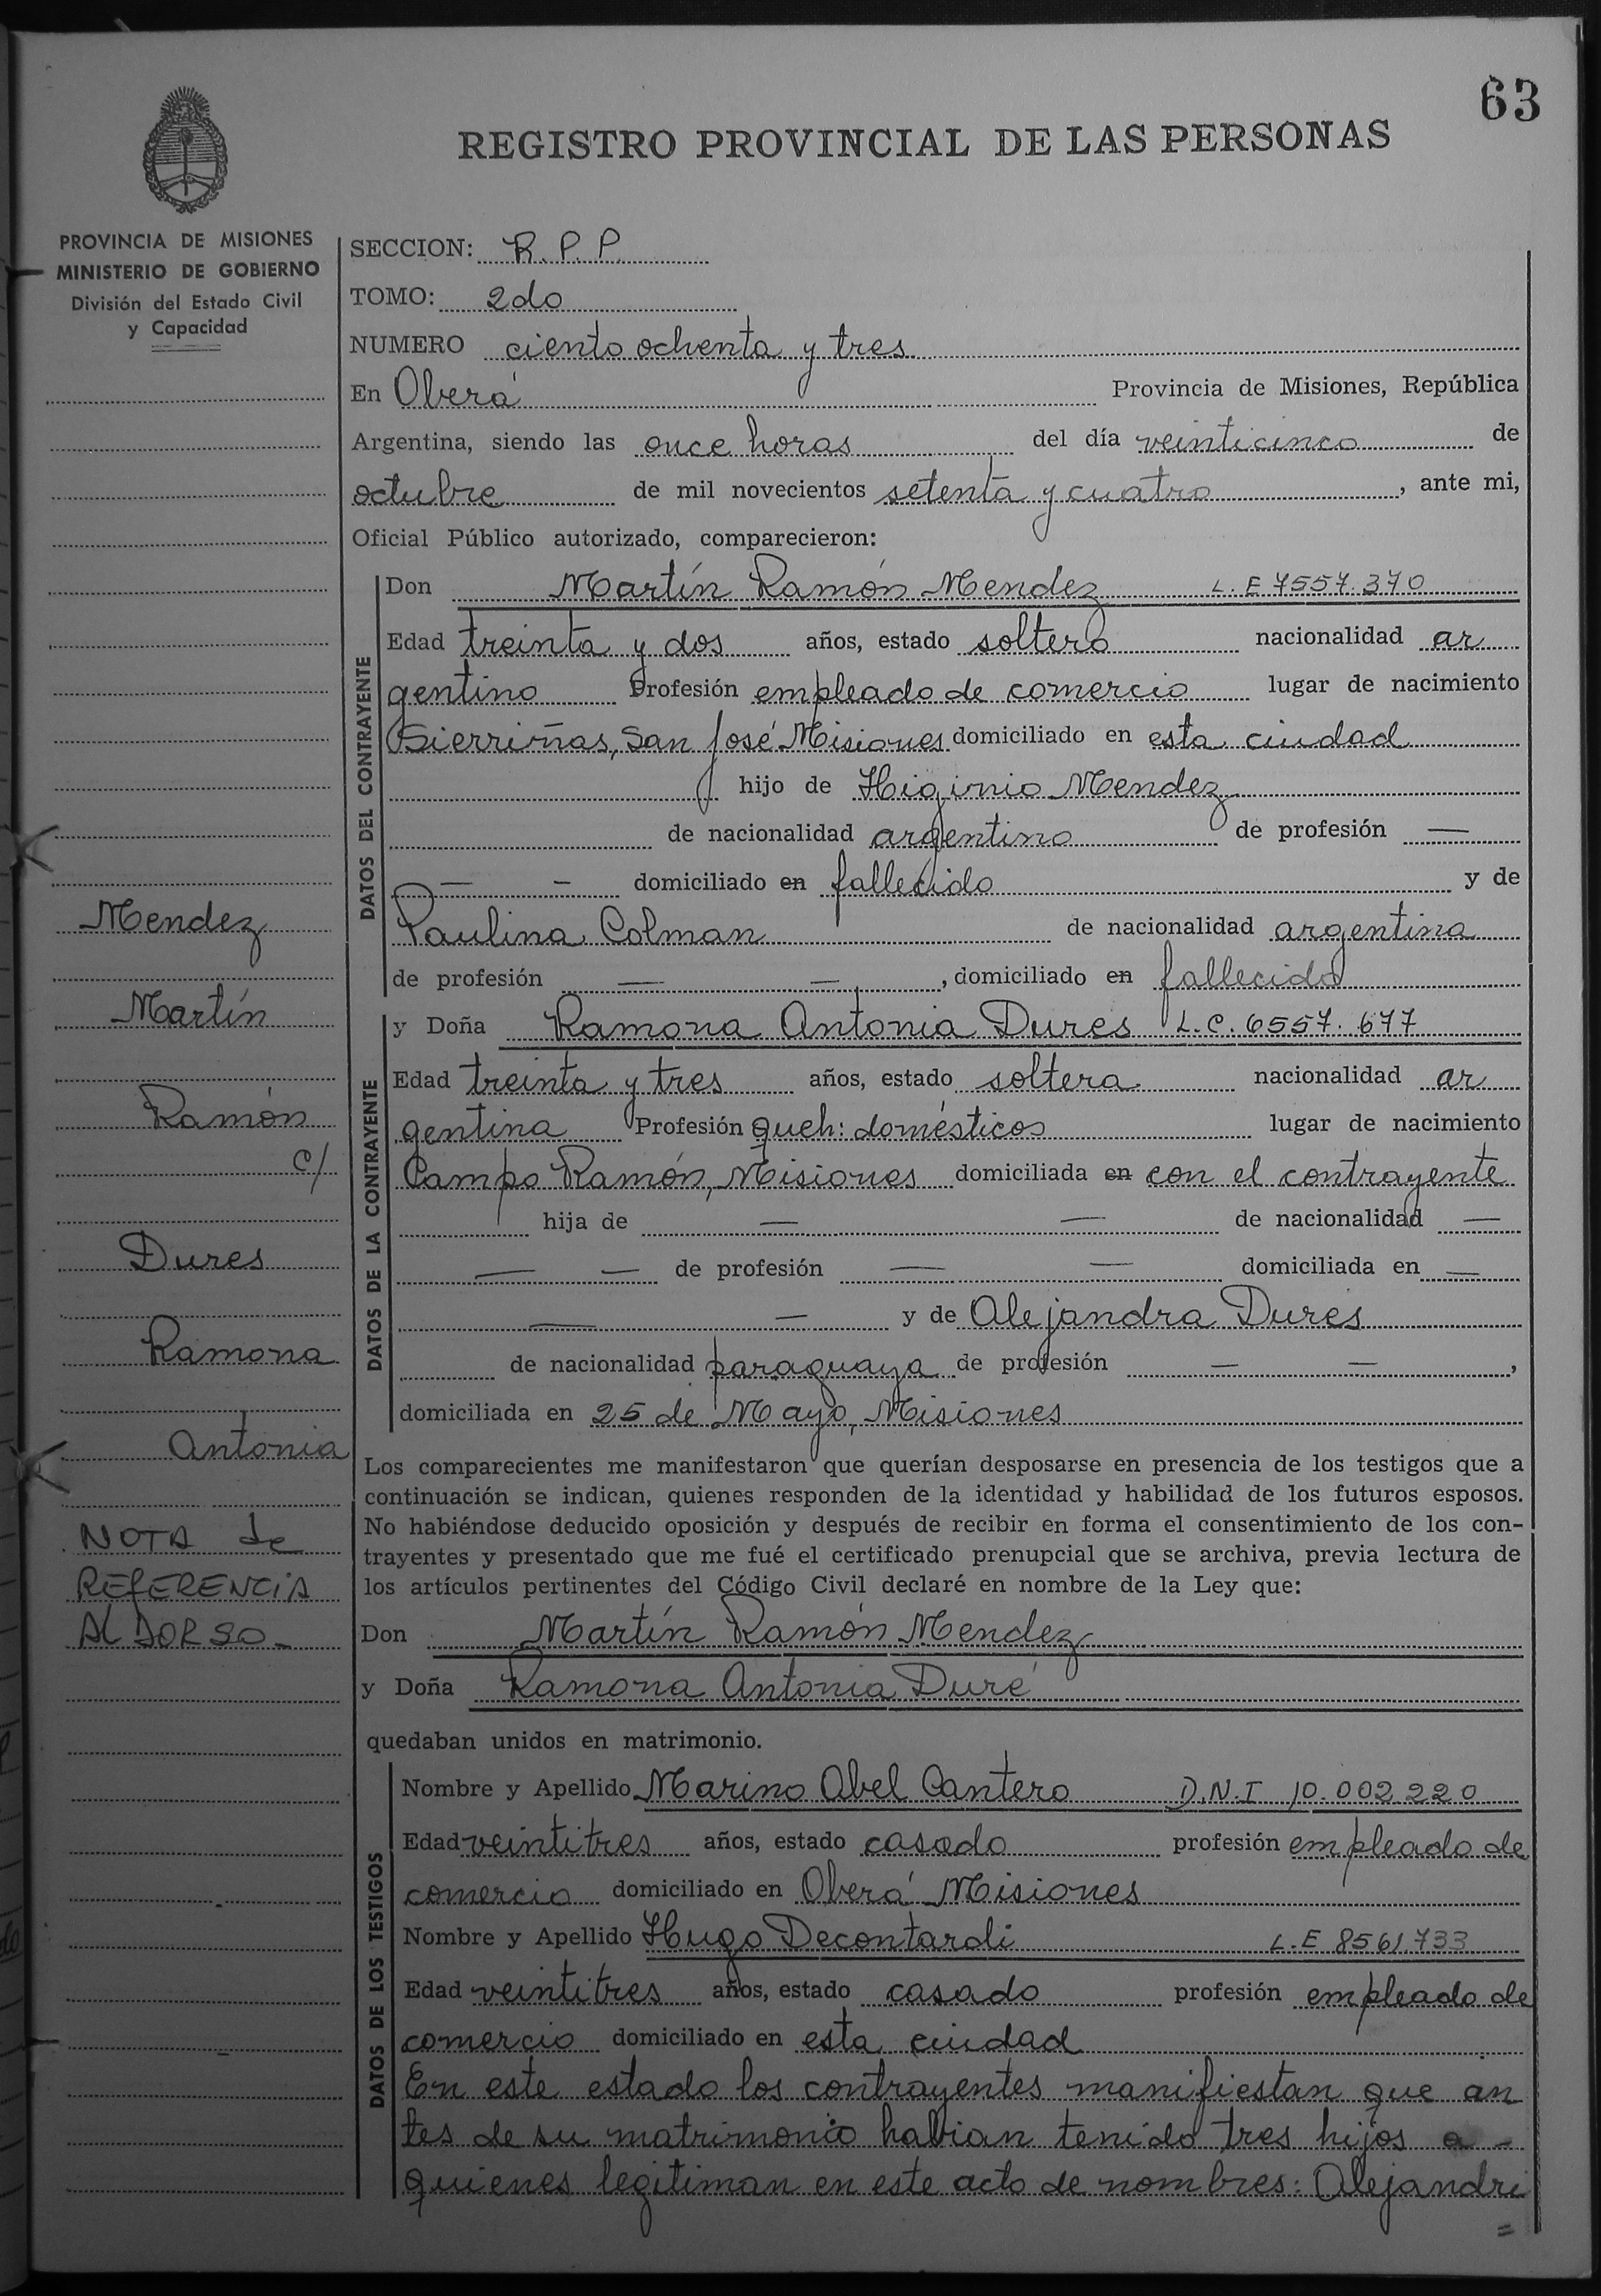 63
REGISTRO PROVINCIAL DE LAS PERSONAS
PROVINCIA DE MISIONES
MINISTERIO DE GOBIERNO
División del Estado Civil
y Capacidad
SECCION: R. P. P.
TOMO: 2do
NUMERO ciento ochenta y tres
En Oberá Provincia de Misiones, República
Argentina, siendo las once horas del día veinticinco de
octubre de mil novecientos setenta y cuatro, ante mi,
Oficial Público autorizado, comparecieron:
DATOS DEL CONTRAYENTE
Don Martín Ramón Mendez L. E 7557.370
Edad treinta y dos años, estado soltero nacionalidad ar
gentino Profesión empleado de comercio lugar de nacimiento
Sierriñas, San José Misiones domiciliado en esta ciudad
hijo de Higinio Mendez
de nacionalidad argentino de profesión —
— - domiciliado en fallecido y de
Paulina Colman de nacionalidad argentina
de profesión — —, domiciliado en fallecida
DATOS DE LA CONTRAYENTE
y Doña Ramona Antonia Dures L.C. 6557.677
Edad treinta y tres años, estado soltera nacionalidad ar
gentina Profesión queh: domésticos lugar de nacimiento
Campo Ramón, Misiones domiciliada en con el contrayente
hija de — — de nacionalidad —
— — de profesión — — domiciliada en —
— — y de Alejandra Dures
de nacionalidad paraguaya de profesión — —,
domiciliada en 25 de Mayo, Misiones
Los comparecientes me manifestaron que querían desposarse en presencia de los testigos que a
continuación se indican, quienes responden de la identidad y habilidad de los futuros esposos.
No habiéndose deducido oposición y después de recibir en forma el consentimiento de los con-
trayentes y presentado que me fué el certificado prenupcial que se archiva, previa lectura de
los artículos pertinentes del Código Civil declaré en nombre de la Ley que:
Don Martín Ramón Mendez
y Doña Ramona Antonia Duré
quedaban unidos en matrimonio.
DATOS DE LOS TESTIGOS
Nombre y Apellido Marino Abel Cantero D.N.I 10.002.220
Edad veintitres años, estado casado profesión empleado de
comercio domiciliado en Oberá Misiones
Nombre y Apellido Hugo Decontardi L.E 8561.733
Edad veintitres años, estado casado profesión empleado de
comercio domiciliado en esta ciudad
En este estado los contrayentes manifiestan que an
tes de su matrimonio habian tenido tres hijos a -
quienes legitiman en este acto de nombres: Alejandri
=
Mendez
Martín
Ramón
c/
Dures
Ramona
Antonia
NOTA de
REFERENCIA
AL DORSO-